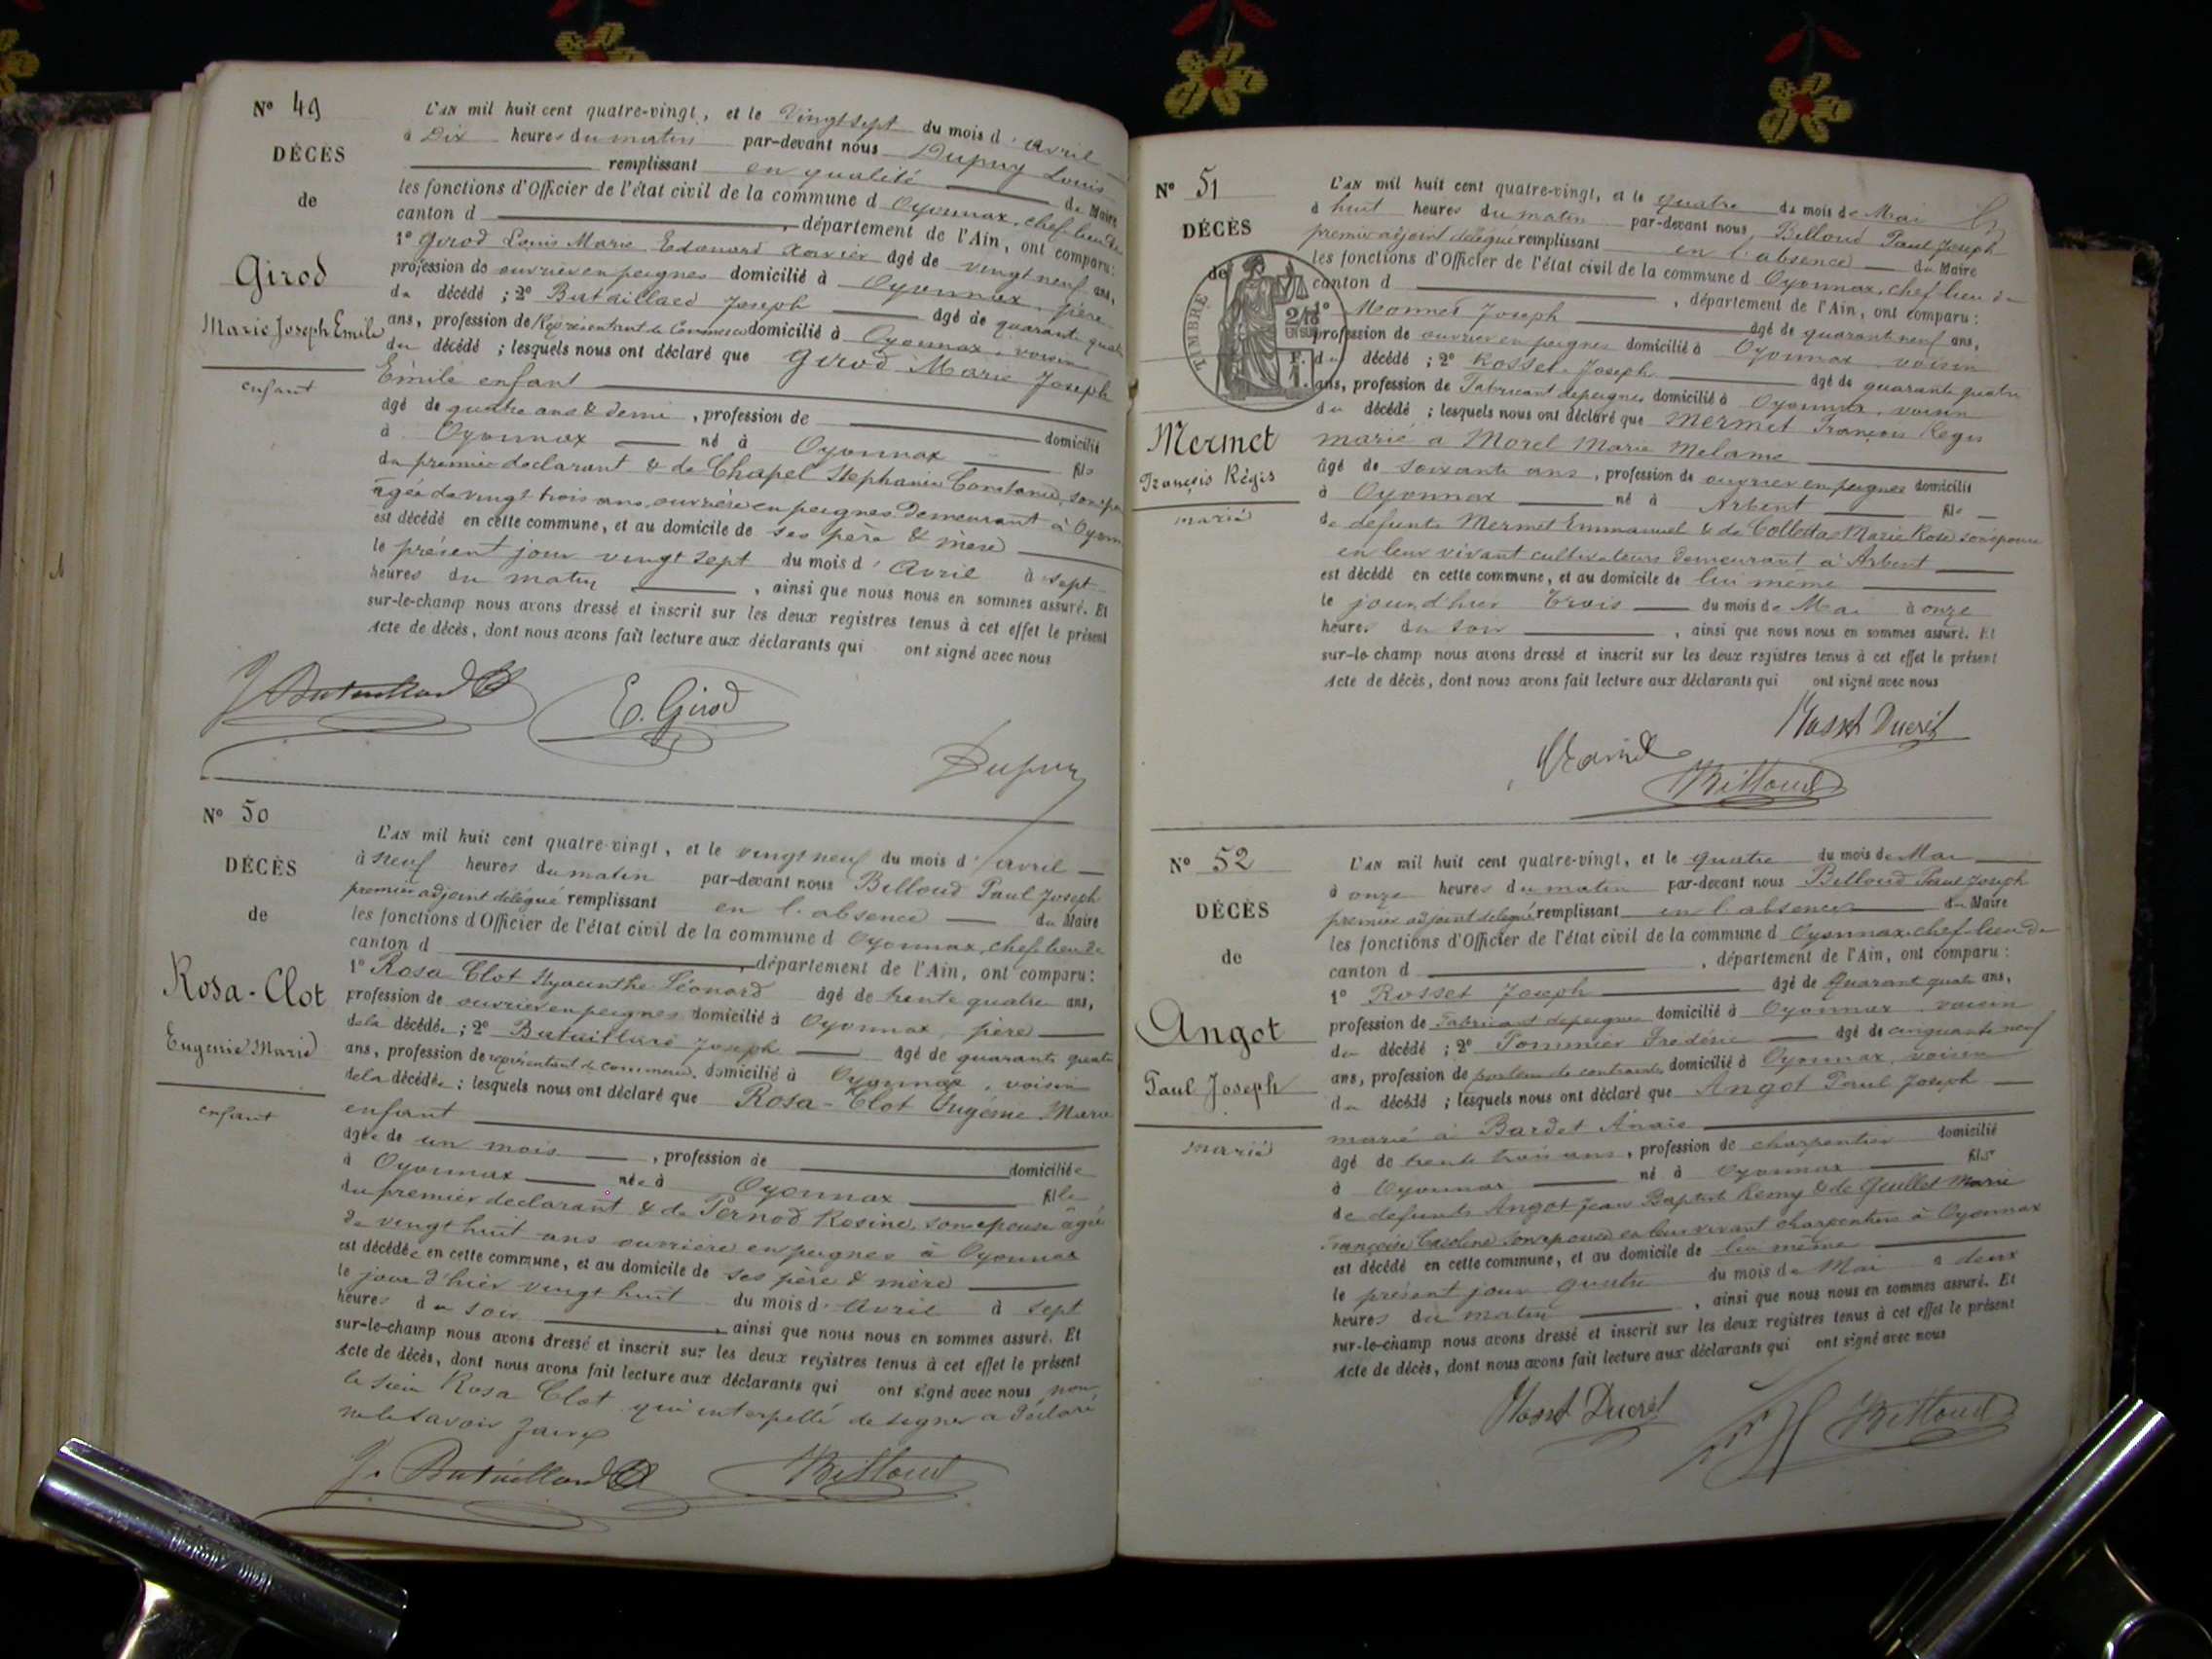 N° 49
DÉCÈS
de
Girod
Marie Joseph Emile
enfant
L'AN mil huit cent quatre-vingt, et le Vingt sept du mois d'avril
à Dix heures du matin par-devant nous Dupuy Louis
remplissant en qualité de Maire
les fonctions d'Officier de l'état civil de la commune d Oyonnax, chef-lieu de
canton d , département de l'Ain, ont comparu:
1° Girod Louis Marie Edouard Xavier âgé de vingt neuf ans,
profession de ouvrier en peignes domicilié à Oyonnax, père
du décédé ; 2° Bataillard Joseph âgé de quarante quatre
ans, profession de Représentant de Commerce domicilié à Oyonnax, voisin
du décédé ; lesquels nous ont déclaré que Girod Marie Joseph
Emile enfant
âgé de quatre ans & demi , profession de domicilié
à Oyonnax né à Oyonnax fils
du premier declarant & de Chapel Stephanie Constance, son épouse
âgée de vingt trois ans, ouvrière en peignes demeurant à Oyonnax
est décédé en cette commune, et au domicile de ses père & mère
le présent jour vingt sept du mois d'Avril à sept
heures du matin , ainsi que nous nous en sommes assuré. Et
sur-le-champ nous avons dressé et inscrit sur les deux registres tenus à cet effet le présent
Acte de décès, dont nous avons fait lecture aux déclarants qui ont signé avec nous
J Bataillard E. Girod
Dupuy
N° 50
DÉCÈS
de
Rosa-Clot
Eugenie Marie
enfant
L'AN mil huit cent quatre-vingt, et le vingt neuf du mois d'avril
à neuf heures du matin par-devant nous Billoud Paul Joseph
premier adjoint délégué remplissant en l'absence du Maire
les fonctions d'Officier de l'état civil de la commune d Oyonnax, chef-lieu de
canton d , département de l'Ain, ont comparu:
1° Rosa Clot Hyacinthe Léonard âgé de trente quatre ans,
profession de ouvrier en peignes domicilié à Oyonnax, père
de la décédée ; 2° Bataillard Joseph âgé de quarante quatre
ans, profession de représentant de commerce, domicilié à Oyonnax, voisin
de la décédée ; lesquels nous ont déclaré que Rosa-Clot Eugénie Marie
enfant
âgée de un mois , profession de domiciliée
à Oyonnax née à Oyonnax fille
du premier declarant & de Pernod Rosine, son epouse âgée
de vingt huit ans ouvrière en peignes à Oyonnax
est décédée en cette commune, et au domicile de ses père & mère
le jour d'hier vingt huit du mois d'avril à sept
heures du soir , ainsi que nous nous en sommes assuré. Et
sur-le-champ nous avons dressé et inscrit sur les deux registres tenus à cet effet le présent
Acte de décès, dont nous avons fait lecture aux déclarants qui ont signé avec nous non
le sieur Rosa Clot qui interpellé de signer a déclaré
ne le savoir faire
J. Bataillard Billoud
N° 51
DÉCÈS
de
TIMBRE
Mermet
François Régis
marié
L'AN mil huit cent quatre-vingt, et le quatre du mois de Mai
à huit heures du matin par-devant nous Billoud Paul Joseph
premier adjoint délégué remplissant en l'absence du Maire
les fonctions d'Officier de l'état civil de la commune d Oyonnax, chef-lieu de
canton d , département de l'Ain, ont comparu:
1° Joseph âgé de quarante neuf ans,
profession de ouvrier en peignes domicilié à Oyonnax voisin
du décédé ; 2° Rosset Joseph âgé de quarante quatre
ans, profession de Fabricant de peignes domicilié à Oyonnax, voisin
du décédé ; lesquels nous ont déclaré que Mermet François Regis
marié a Morel Marie Melanie
âgé de soixante ans , profession de ouvrier en peignes domicilié
à Oyonnax né à Arbent fils
de defunts Mermet Emmanuel & de Colletta Marie Rose son épouse
en leur vivant cultivateurs demeurant à Arbent
est décédé en cette commune, et au domicile de lui même
le jour d'hier trois du mois de Mai à onze
heures du soir , ainsi que nous nous en sommes assuré. Et
sur-le champ nous avons dressé et inscrit sur les deux registres tenus à cet effet le présent
Acte de décès, dont nous avons fait lecture aux déclarants qui ont signé avec nous
Rosset Ducret
Billoud
N° 52
DÉCÈS
de
Angot
Paul Joseph
marié
L'AN mil huit cent quatre-vingt, et le quatre du mois de Mai
à onze heures du matin par-devant nous Billoud Paul Joseph
premier adjoint délégué remplissant en l'absence du Maire
les fonctions d'Officier de l'état civil de la commune d Oyonnax chef-lieu de
canton d , département de l'Ain, ont comparu:
1° Rosset Joseph âgé de Quarante quatre ans,
profession de Fabricant de peignes domicilié à Oyonnax voisin
du décédé ; 2° Pommier Frédéric âgé de cinquante neuf
ans, profession de porteur de contraintes domicilié à Oyonnax, voisin
du décédé ; lesquels nous ont déclaré que Angot Paul Joseph
marié à Bardet Anaïs
âgé de trente trois ans , profession de charpentier domicilié
à Oyonnax né à Oyonnax fils
de defunts Angot Jean Baptiste Remy & de Guillet Marie
Françoise Caroline son epouse en leur vivant charpentiers à Oyonnax
est décédé en cette commune, et au domicile de lui même
le présent jour quatre du mois de Mai à deux
heures du matin , ainsi que nous nous en sommes assuré. Et
sur-le-champ nous avons dressé et inscrit sur les deux registres tenus à cet effet le présent
Acte de décès, dont nous avons fait lecture aux déclarants qui ont signé avec nous
Rosset Ducret Billoud